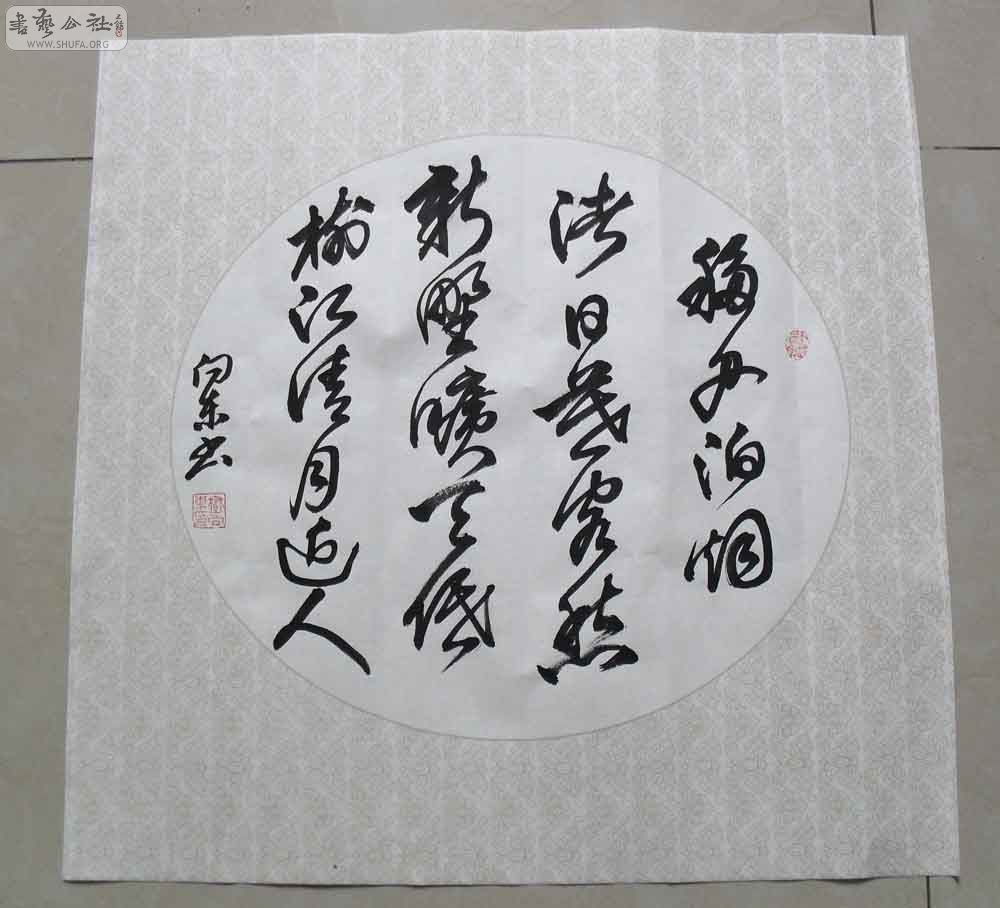 書藝公社
WWW.SHUFA.ORG
移舟泊烟
渚日暮客愁
新野曠天低
樹江清月近人
向書